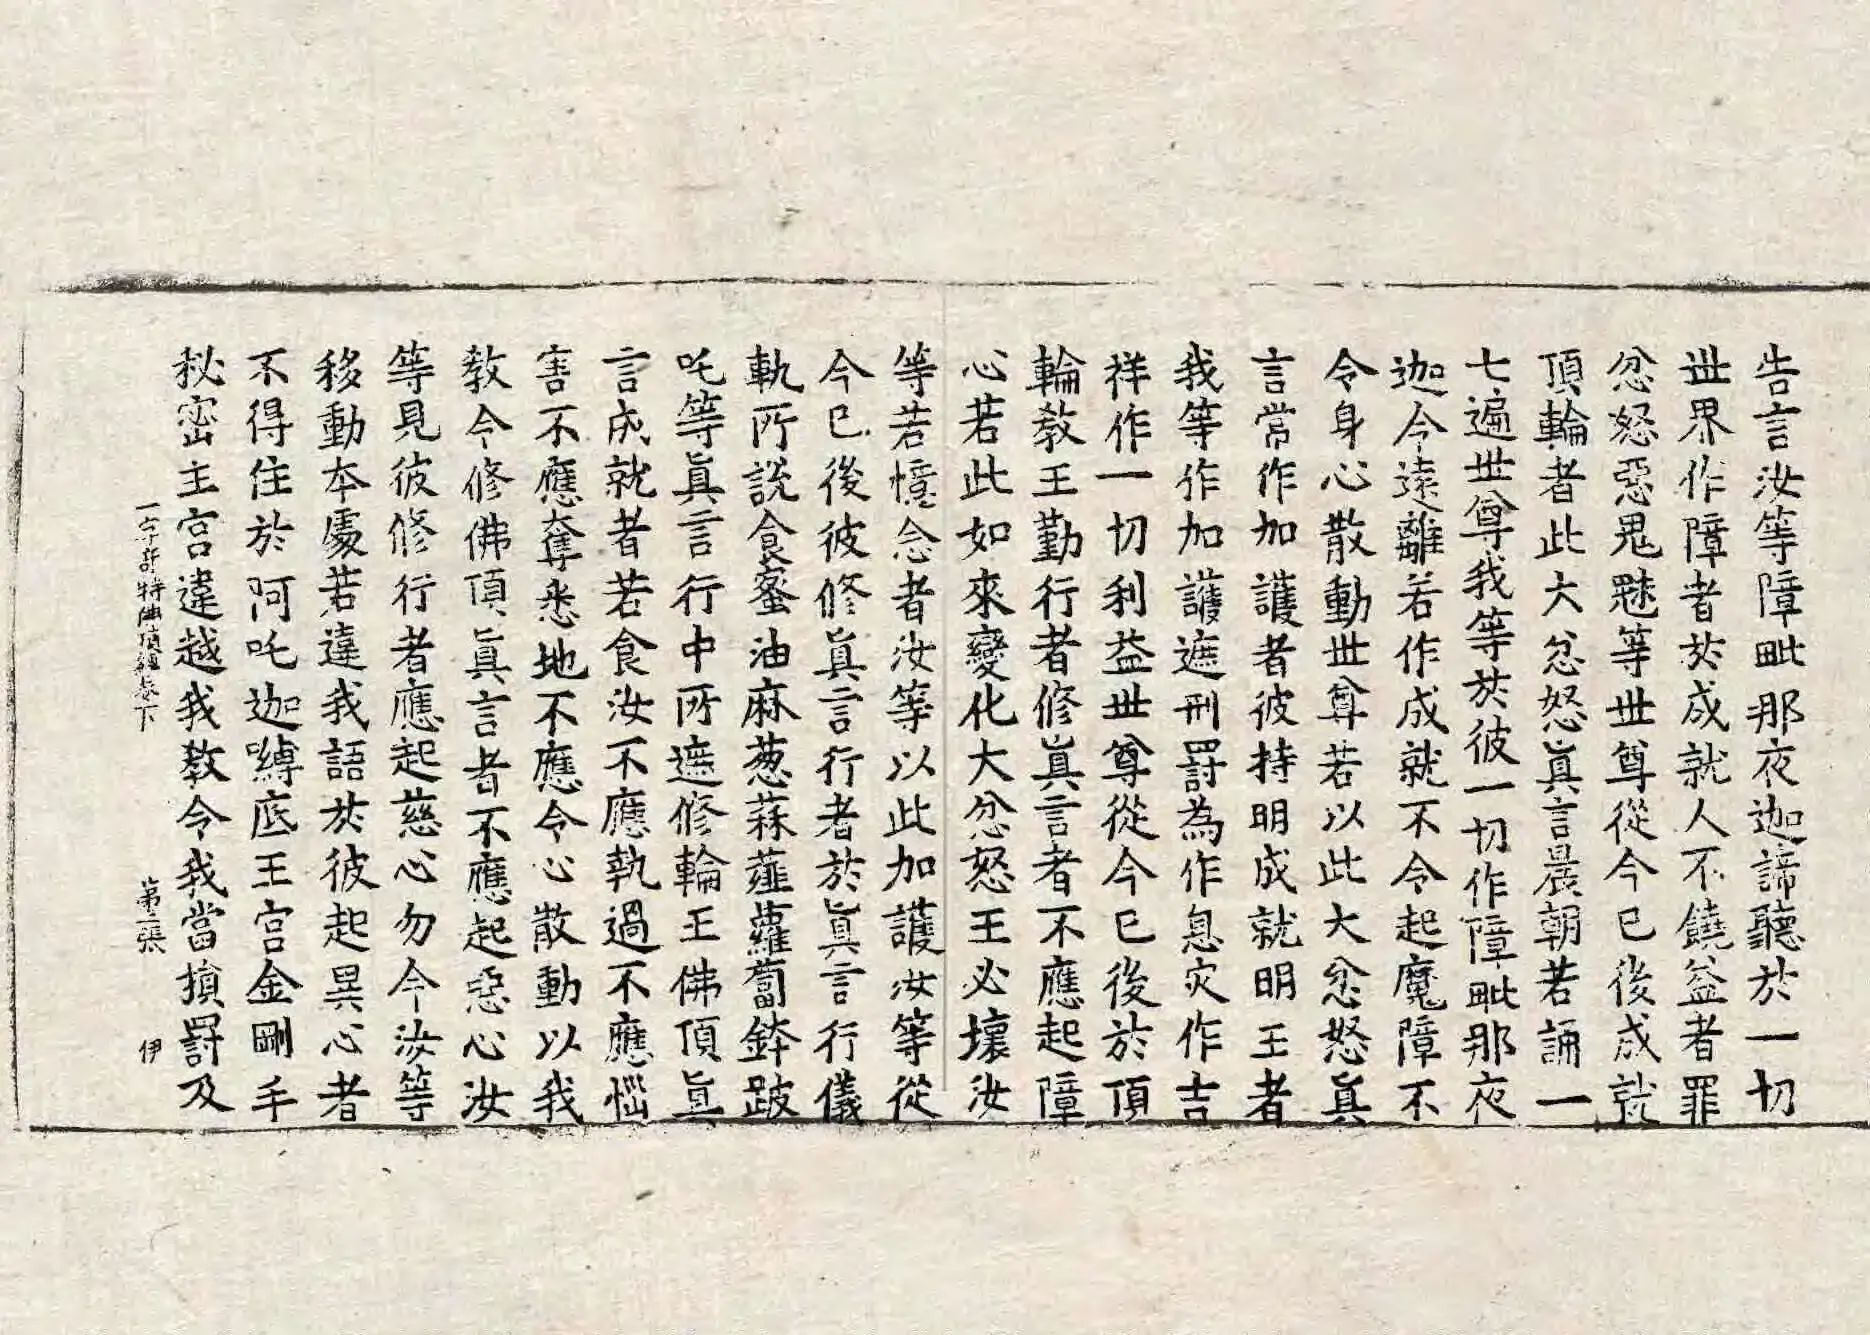 告言汝等障毗那夜迦諦聽於一切
世界作障者於成就人不饒益者罪
忿怒惡鬼魅等世尊從今已後成就
頂輪者此大忿怒眞言晨朝若誦一
七遍世尊我等於彼一切作障毗那夜
迦今遠離若作成就不令起魔障不
令身心散動世尊若以此大忿怒眞
言常作加護者彼持明成就明王者
我等作加護遮刑罸為作息灾作吉
祥作一切利益世尊從今已後於頂
輪教王勤行者修眞言者不應起障
心若此如來變化大忿怒王必壞汝
等若憶念者汝等以此加護汝等從
今已後彼修眞言行者於眞言行儀
軌所說食蜜油麻葱蒜薤蘿蔔鉢跛
吒等眞言行中所遮修輪王佛頂眞
言成就者若食汝不應執過不應惱
害不應奪悉地不應令心散動以我
教令修佛頂眞言者不應起惡心汝
等見彼修行者應起慈心勿今汝等
移動本處若違我語於彼起異心者
不得住於阿吒迦嚩底王宮金剛手
秘密主宮違越我教令我當摧罸及
一字竒特佛頂經卷下 第二張 伊